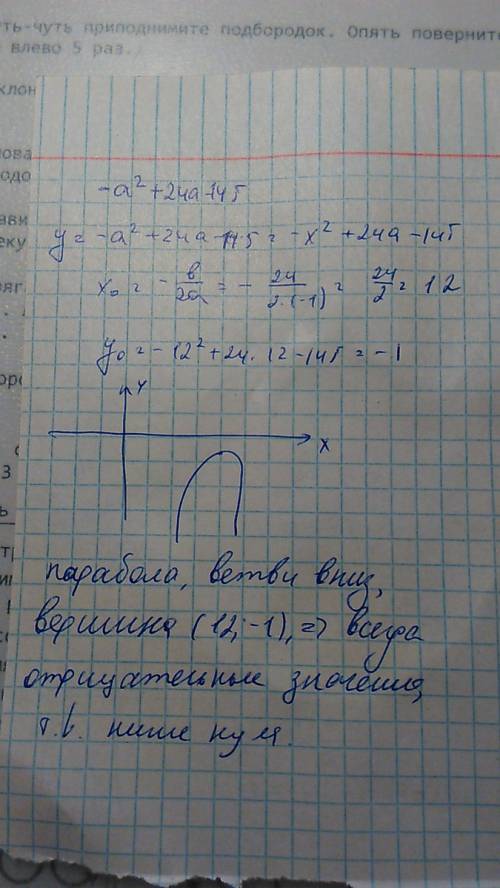 уть-чуть приподнимите подбородок. Опять поверните
влево 5 раз.
-a² + 24a - 145
y = -a² + 24a - 145 = -x² + 24a - 145
x₀ = - в/2a = - 24/2·(-1) = 24/2 = 12
y₀ = -12² + 24 · 12 - 145 = -1
y
x
парабола, ветви вниз,
вершина (12; -1), => всегда
отрицательные значения,
т.е. ниже нуля.